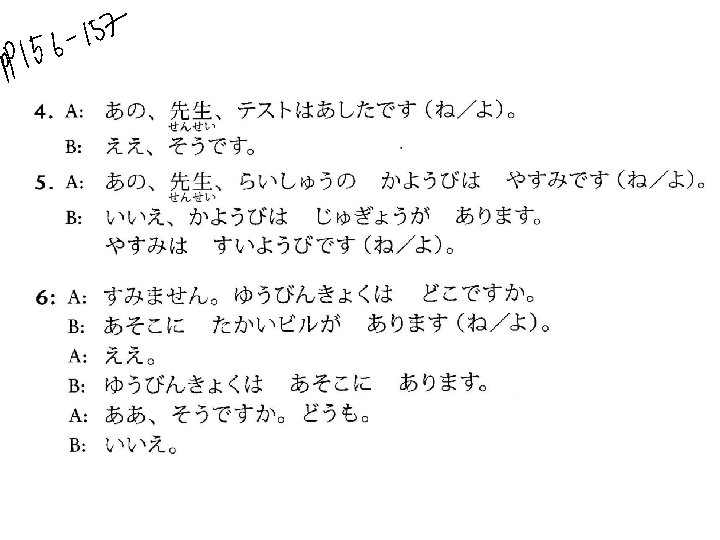 PP156-157
4. A: あの、先生、テストはあしたです（ね／よ）。
せんせい
B: ええ、そうです。
5. A: あの、先生、らいしゅうの　かようびは　やすみです（ね／よ）。
せんせい
B: いいえ、かようびは　じゅぎょうが　あります。
やすみは　すいようびです（ね／よ）。
6: A: すみません。ゆうびんきょくは　どこですか。
B: あそこに　たかいビルが　あります（ね／よ）。
A: ええ。
B: ゆうびんきょくは　あそこに　あります。
A: ああ、そうですか。どうも。
B: いいえ。